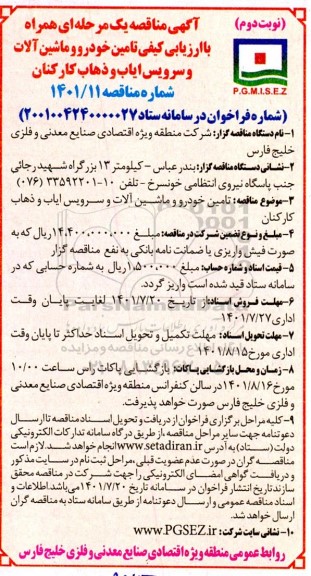 (نوبت دوم)
آگهی مناقصه یک مرحله ای همراه
با ارزیابی کیفی تامین خودرو و ماشین آلات
و سرویس ایاب و ذهاب کارکنان
شماره مناقصه ۱۴۰۱/۱۱
P.G.M.I.S.E.Z
(شماره فراخوان در سامانه ستاد ۲۰۰۱۰۰۴۲۴۰۰۰۰۰۲۷)
۱- نام دستگاه مناقصه گزار: شرکت منطقه ویژه اقتصادی صنایع معدنی و فلزی
خلیج فارس
۲- نشانی دستگاه مناقصه گزار: بندرعباس - کیلومتر ۱۳ بزرگراه شهید رجائی
جنب پاسگاه نیروی انتظامی خونسرخ - تلفن ۱۰-۳۳۵۹۲۲۰۱ (۰۷۶)
۳- موضوع مناقصه: تامین خودرو و ماشین آلات و سرویس ایاب و ذهاب
کارکنان
۴- مبلغ و نوع تضمین شرکت در مناقصه: مبلغ ۱۴.۴۰۰.۰۰۰.۰۰۰ ریال که به
صورت فیش واریزی یا ضمانت نامه بانکی به نفع مناقصه گزار
۵- قیمت اسناد و شماره حساب: مبلغ ۱.۵۰۰.۰۰۰ ریال به شماره حسابی که در
سامانه ستاد قید شده است واریز گردد.
۶- مهلت فروش اسناد: از تاریخ ۱۴۰۱/۷/۲۰ لغایت پایان وقت
اداری ۱۴۰۱/۷/۲۷
۷- مهلت تحویل اسناد: مهلت تکمیل و تحویل اسناد حداکثر تا پایان وقت
اداری مورخ ۱۴۰۱/۸/۱۵
۸- زمان و محل بازگشایی پاکات: بازگشایی پاکات راس ساعت ۱۰/۰۰
مورخ ۱۴۰۱/۸/۱۶ در سالن کنفرانس منطقه ویژه اقتصادی صنایع معدنی
و فلزی خلیج فارس صورت خواهد پذیرفت.
۹- کلیه مراحل برگزاری فراخوان از دریافت و تحویل اسناد مناقصه تا ارسال
دعوتنامه جهت سایر مراحل مناقصه، از طریق درگاه سامانه تدارکات الکترونیکی
دولت (ستاد) به آدرس www.setadiran.ir انجام خواهد شد. لازم است
مناقصه گران در صورت عدم عضویت قبلی، مراحل ثبت نام در سایت مذکور
و دریافت گواهی امضای الکترونیکی را جهت شرکت در مناقصه محقق
سازند تاریخ انتشار فراخوان در سامانه تاریخ ۱۴۰۱/۷/۲۰ می باشد. اطلاعات و
اسناد مناقصه عمومی و ارسال دعوتنامه از طریق سامانه ستاد به مناقصه گران
ارسال خواهد شد.
۱۰- نشانی سایت شرکت: www.PGSEZ.ir
روابط عمومی منطقه ویژه اقتصادی صنایع معدنی و فلزی خلیج فارس